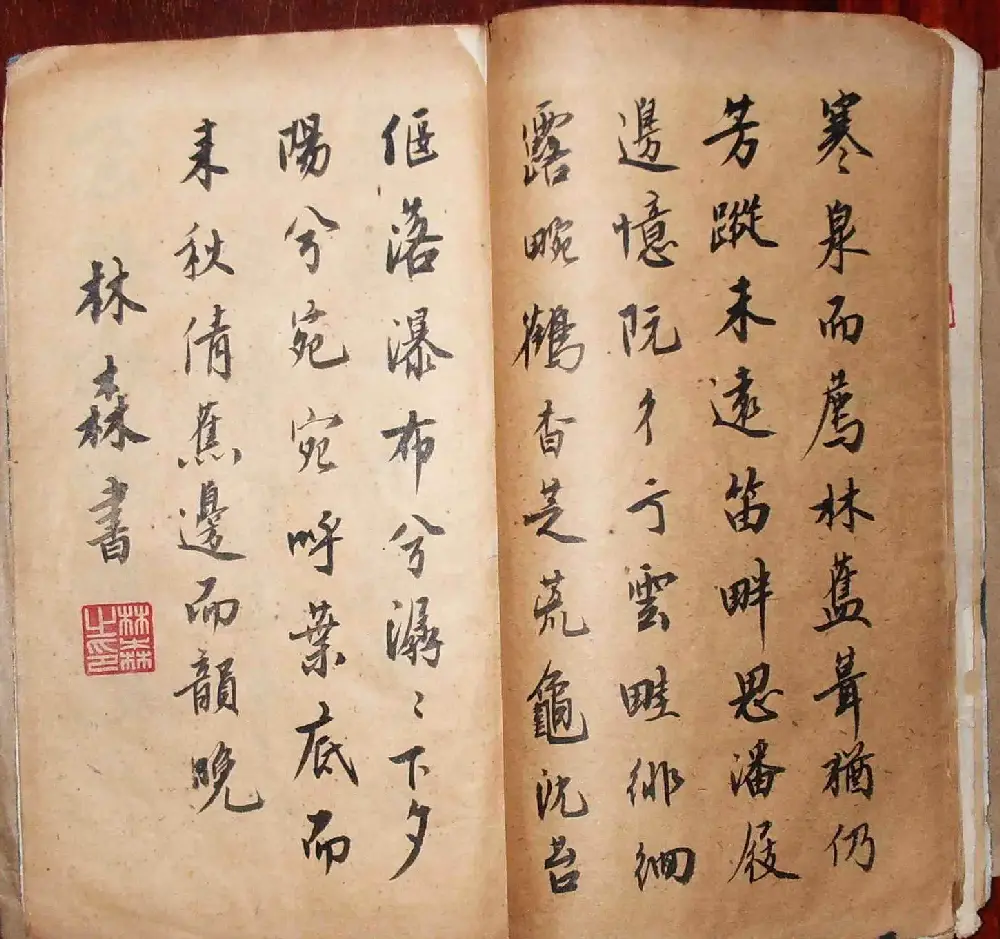 寒泉而薦林藍舊葺猶仍
芳蹤未遠笛畔思潘屐
邊憶阮彳亍雲畦徘徊
露畹鶴杳芝荒龜沈台
偃落瀑布兮潺〻下夕
陽兮宛宛呼葉底而
来秋倩蕉邊而韻晚
林森書
林森之印